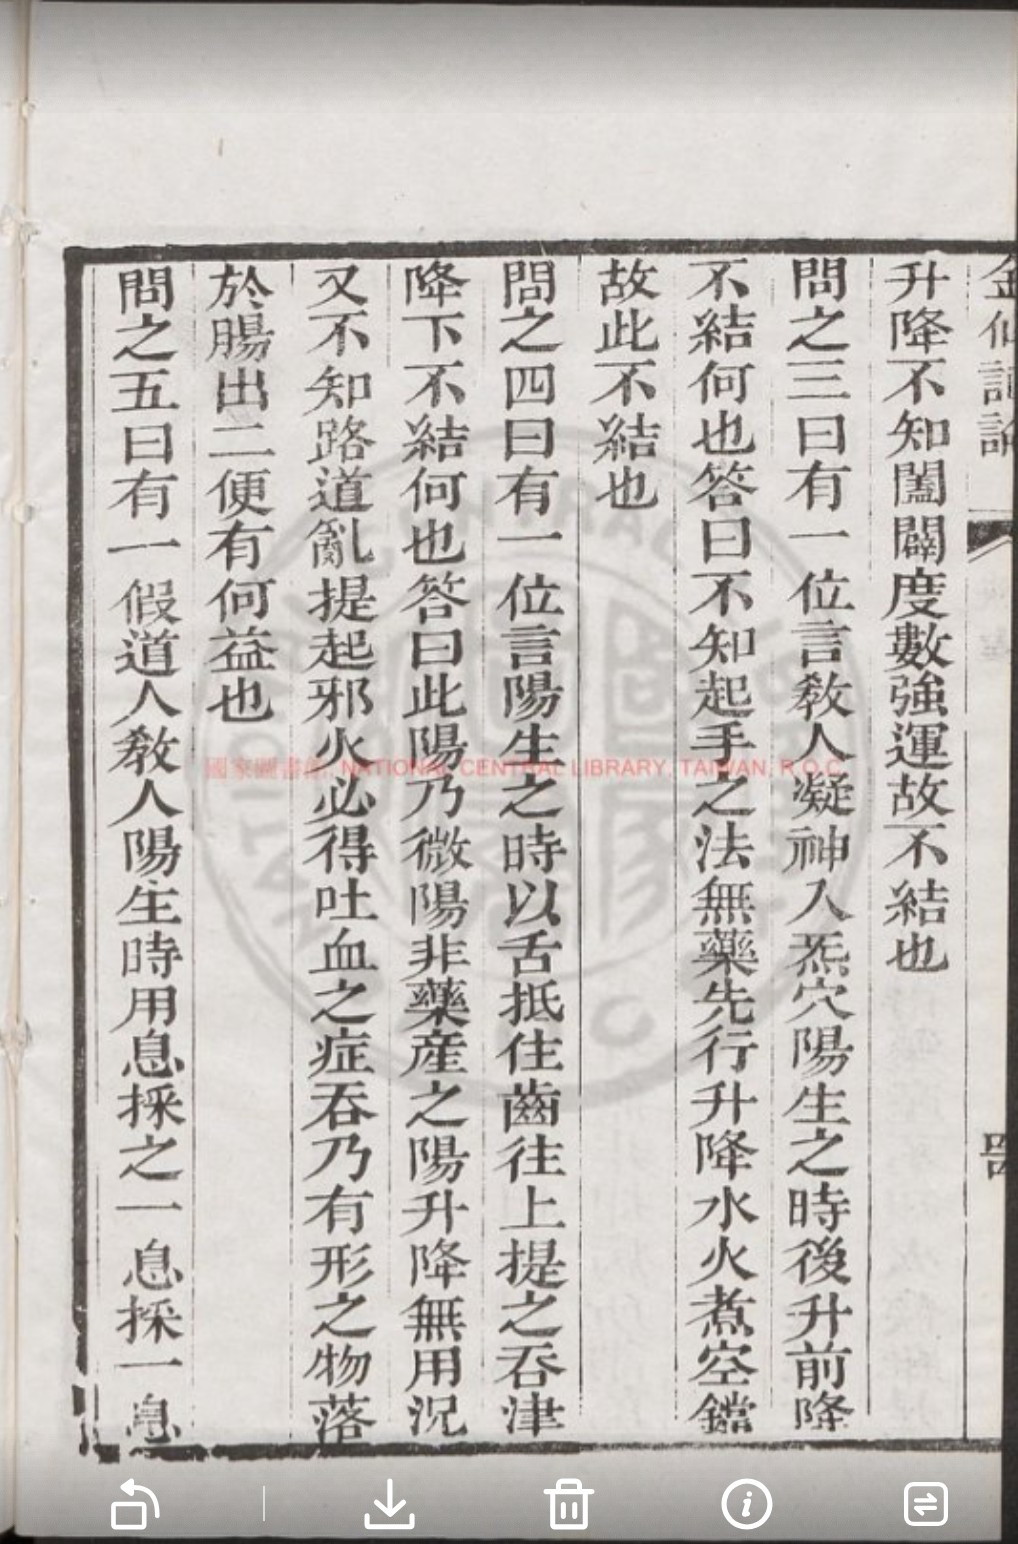 金仙
四
升降不知闔闢度數強運故不結也
問之三曰有一位言教人凝神入炁穴陽生之時後升前降
不結何也答曰不知起手之法無藥先行升降水火煮空鐺
故此不結也
問之四曰有一位言陽生之時以舌抵住齒往上提之吞津
降下不結何也答曰此陽乃微陽非藥產之陽升降無用況
又不知路道亂提起邪火必得吐血之症吞乃有形之物落
於腸出二便有何益也
問之五曰有一假道人教人陽生時用息採之一息採一息
國家圖書館, NATIONAL CENTRAL LIBRARY, TAIWAN, R.O.C